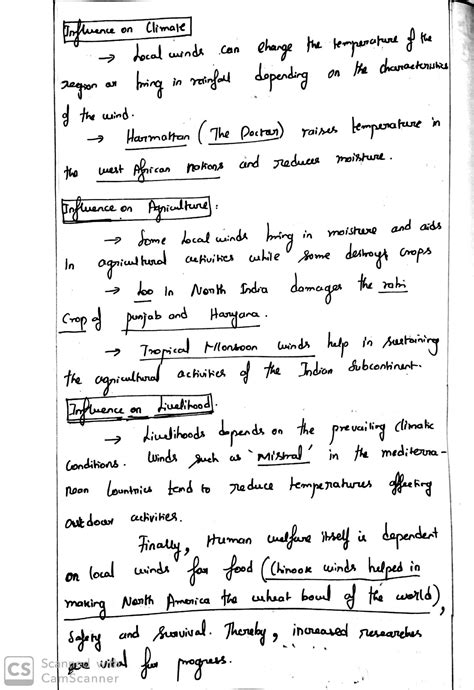 Influence on Climate
→ Local winds can change the temperature of the
region or bring in rainfall depending on the characteristics
of the wind.
→ Harmattan (The Doctor) raises temperature in
the west African nations and reduces moisture.
Influence on Agriculture:
→ Some local winds bring in moisture and aids
In agricultural activities while some destroys crops
→ Loo In North India damages the rabi
Crop of punjab and Haryana.
→ Tropical Monsoon winds help in sustaining
the agricultural activities of the Indian Subcontinent.
Influence on Livelihood.
→ Livelihoods depends on the prevailing climatic
Conditions. Winds such as 'Mistral' in the mediterra-
nean Countries tend to reduce temperatures affecting
outdoor activities.
Finally, Human welfare itself is dependent
on local winds for food (Chinook winds helped in
making North America the wheat bowl of the world),
Safety and Survival. Thereby, increased researches
are vital for progress.
CS Scanned with
CamScanner